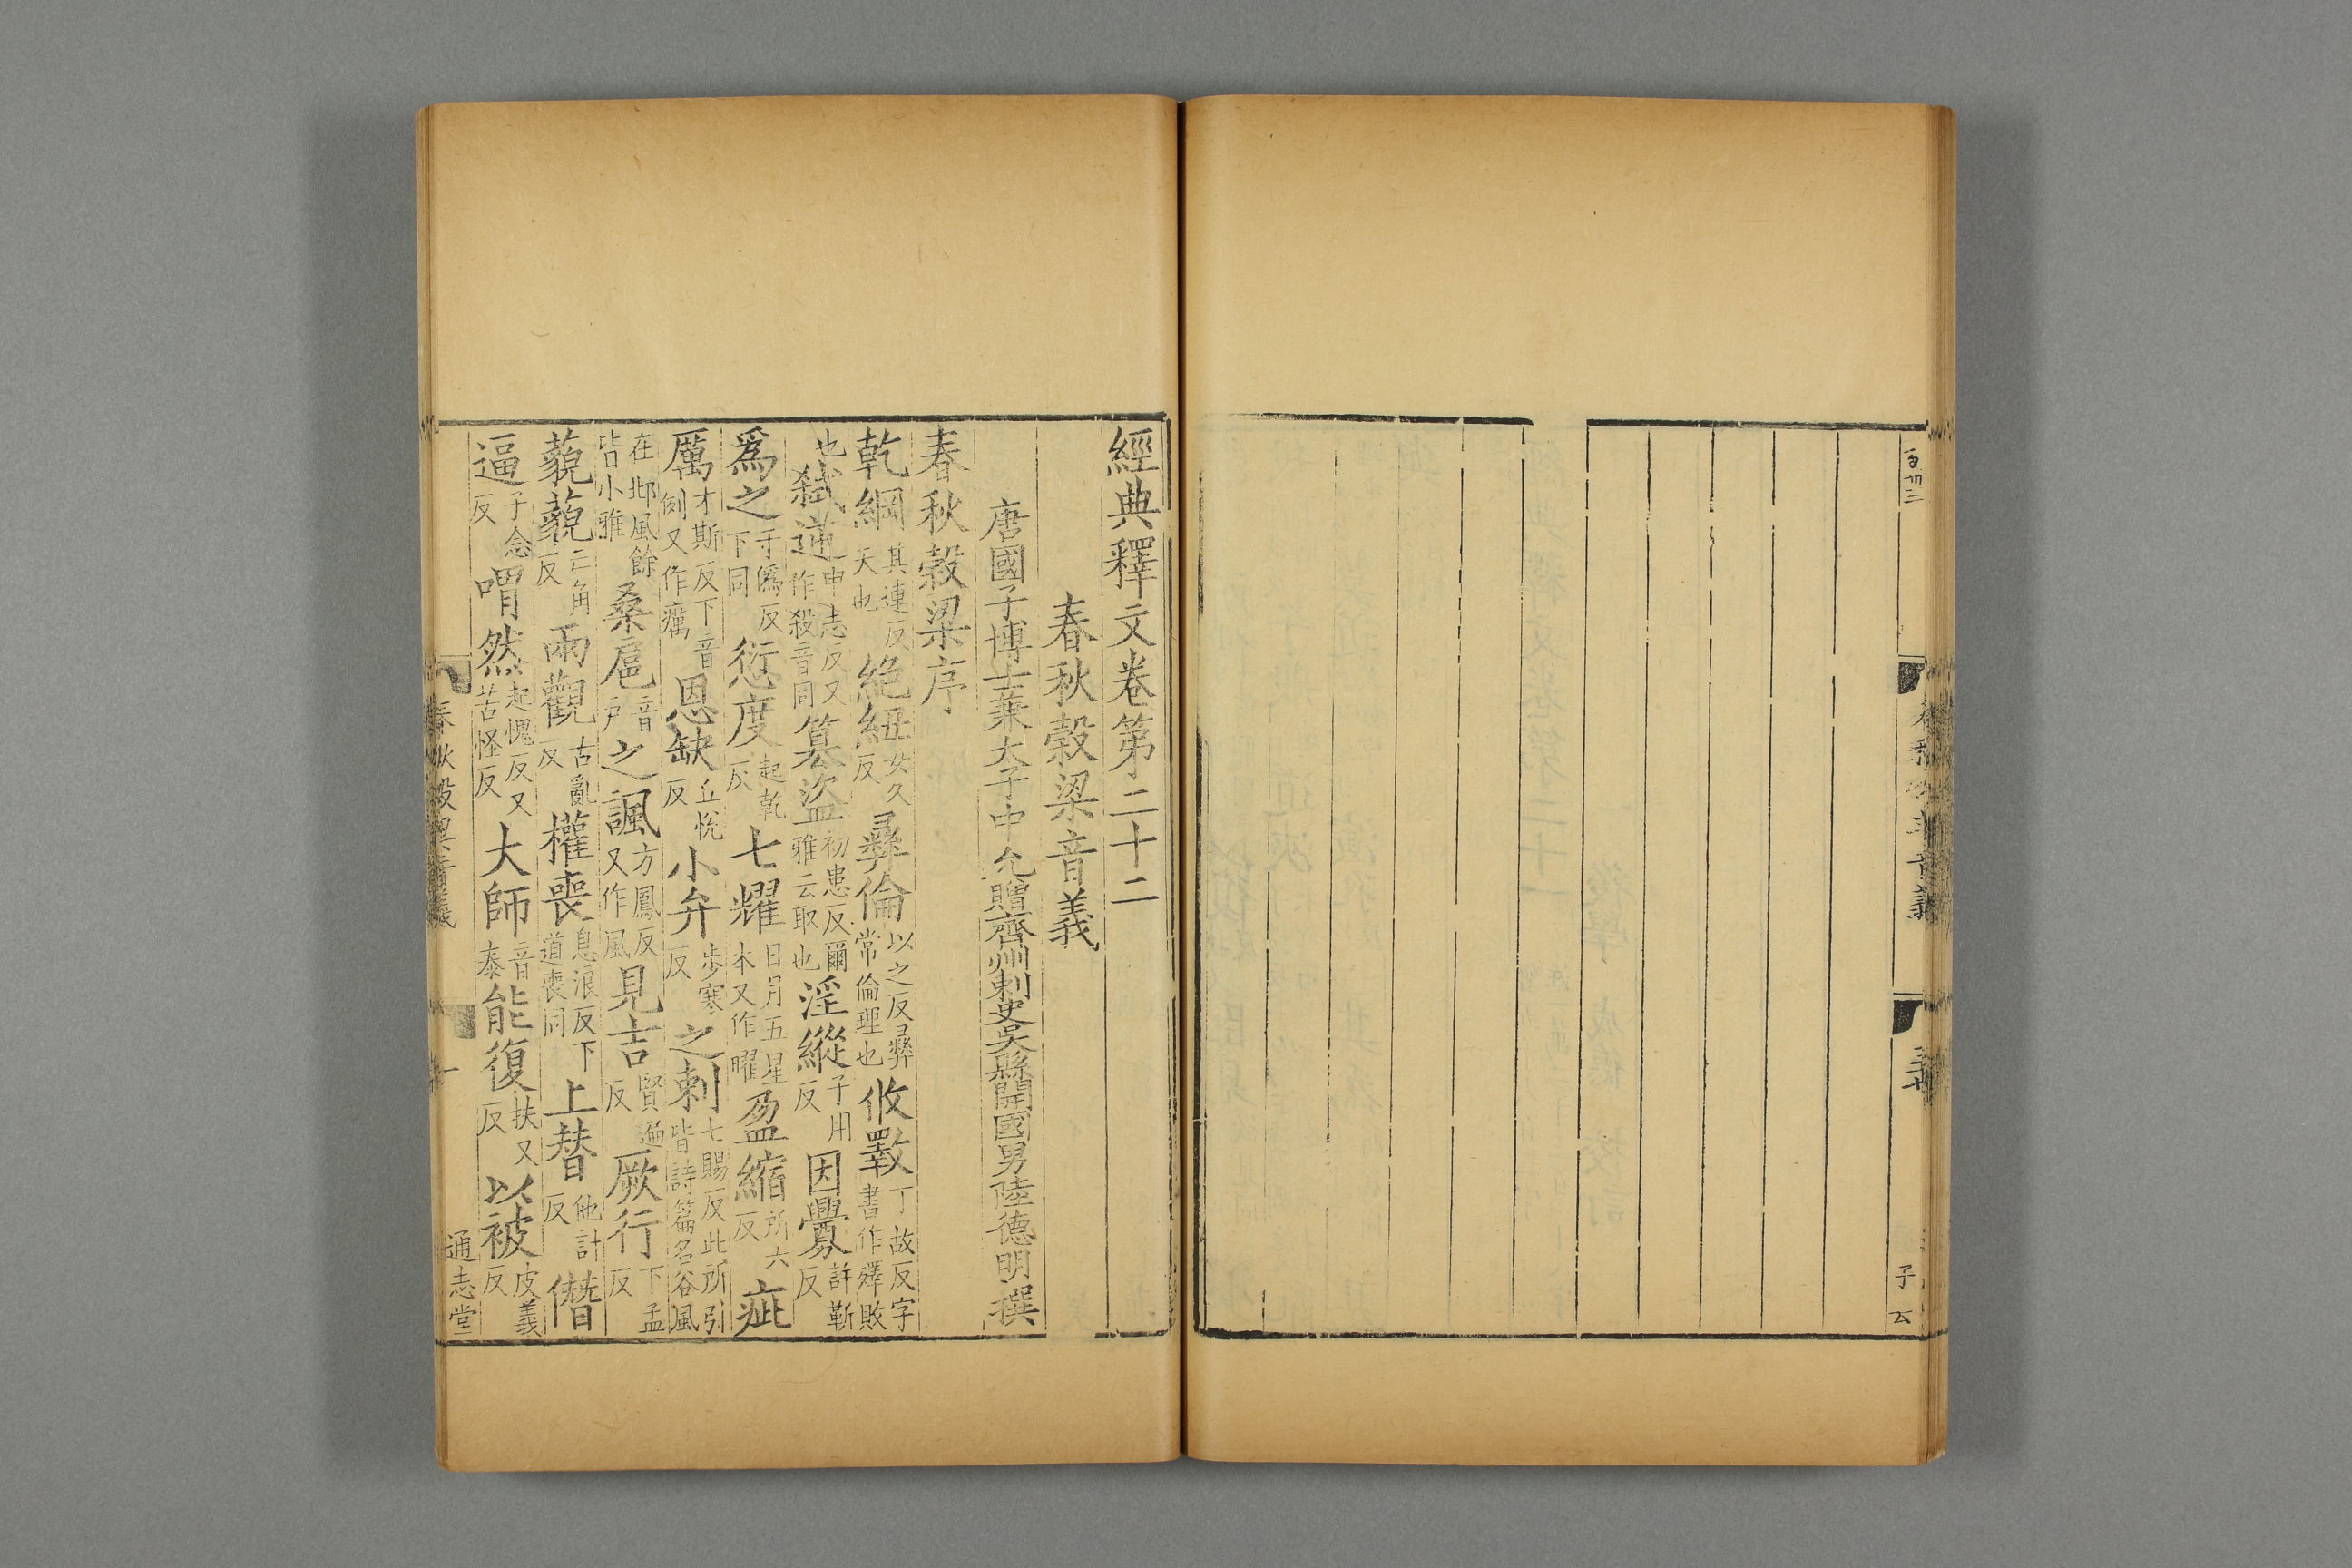 經典釋文卷第二十二
春秋穀梁音義
唐國子博士兼太子中允贈齊州刺史吳縣開國男陸德明撰
春秋穀梁序
乾綱其連反天也絕紐女久反彝倫以之反彝常倫理也攸斁丁故反字書作殬敗
也弑逆申志反又作殺音同簒盜初患反爾雅云取也淫縱子用反因釁許靳反
爲之于僞反下同愆度起乾反七耀日月五星本又作曜盈縮所六反疵
厲才斯反下音例又作癘恩缺丘悅反小弁步寒反之刺七賜反此所引皆詩篇名谷風
在邶風餘皆小雅桑扈音戶之諷方鳳反又作風見吉賢遍反厥行下孟反
藐藐亡角反兩觀古亂反權喪息浪反下道喪同上替他計反僭
逼子念反喟然起愧反又苦怪反大師音泰能復扶又反以被皮義反
春秋穀梁音義
一
通志堂
子